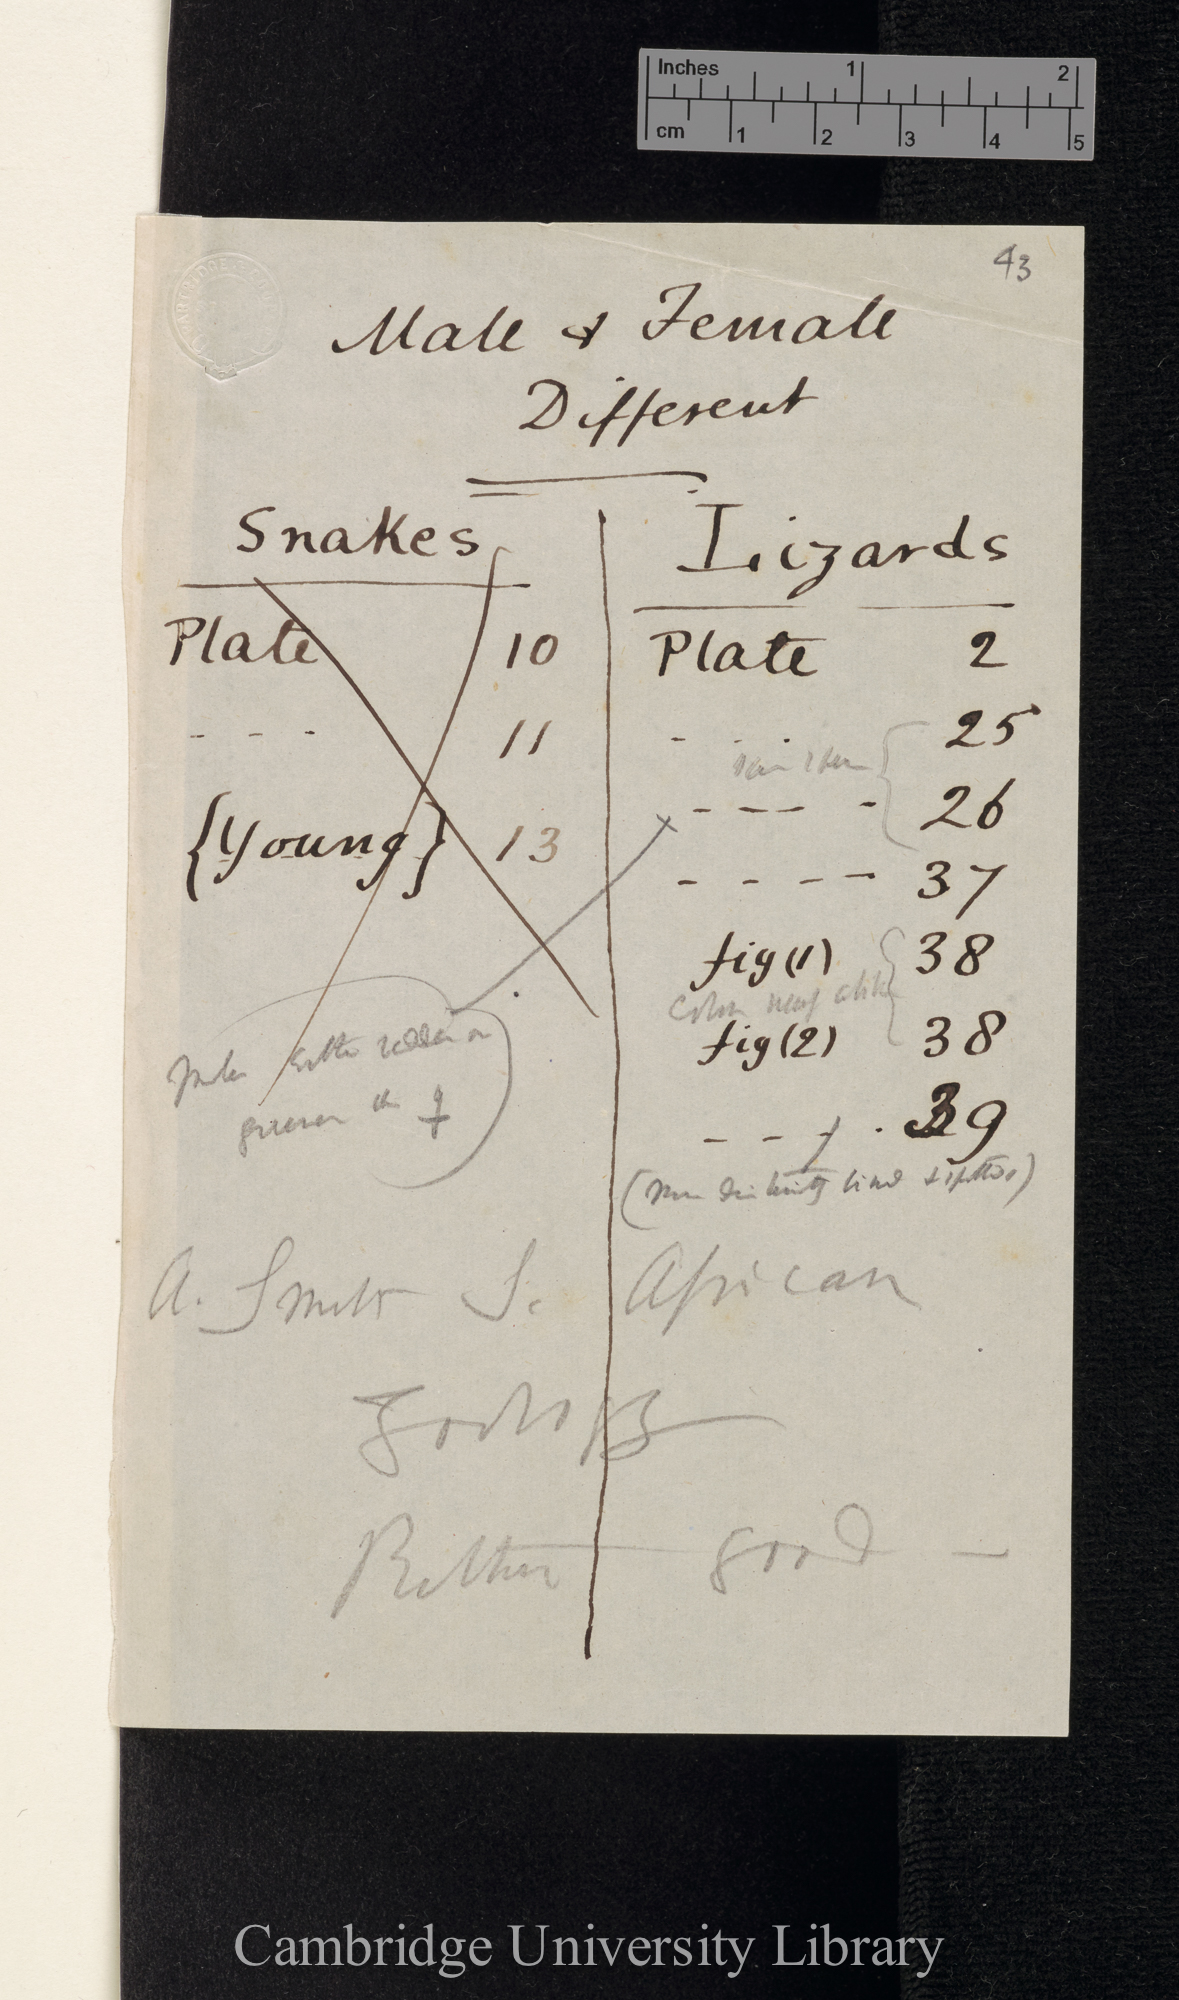 Inches 1 2
cm 1 2 3 4 5
43
Male & Female
Different
Snakes
Plate 10
- - - 11
{Young} 13
Lizards
Plate 2
- - - 25
- - - - 26
- - - - 37
fig (1) 38
Colour nearly alike
fig (2) 38
- - - - 39
greener than ♀
A. Smith S. African
Zoology
Rather good —
Cambridge University Library